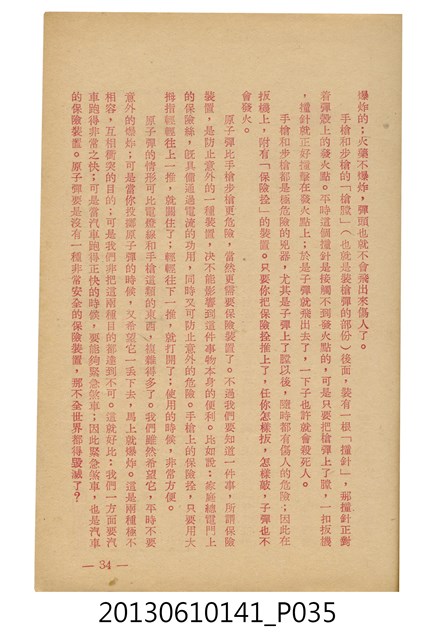 爆炸的;火藥不爆炸,彈頭也就不會飛出來傷人了。
手槍和步槍的「槍膛」(也就是裝槍彈的部份)後面,裝有一根「撞針」,那撞針正對
着彈殼上的發火點。平時這個撞針是接觸不到發火點的,可是只要把槍彈上了膛,一扣扳機
,撞針就正好撞擊在發火點上;於是子彈就飛出去了,一下子也許就會殺死人。
手槍和步槍都是極危險的兇器,尤其是子彈上了膛以後,隨時都有傷人的危險;因此在
扳機上,附有「保險拴」的裝置。只要你把保險拴推上了,任你怎樣扳,怎樣敲,子彈也不
會發火。
原子彈比手槍步槍更危險,當然更需要保險裝置了。不過我們要知道一件事,所謂保險
裝置,是防止意外的一種裝置,決不能影響到這件事物本身的便利。比如說:家庭總電門上
的保險絲,旣具備通過電流的功用,同時又可防止意外的危險。手槍上的保險拴,只要用大
拇指輕輕往上一推,就關住了;輕輕往下一推,就打開了;使用的時候,非常方便。
原子彈的情形可比電燈線和手槍這類的東西,困難得多了。我們雖然希望它,平時不要
意外的爆炸;可是當你投擲原子彈的時候,又希望它一丟下去,馬上就爆炸。這是兩種極不
相容,互相衝突的目的;可是我們非把這兩種目的都達到不可。這就好比:我們一方面要汽
車跑得非常之快;可是當汽車跑得正快的時候,要能夠緊急煞車;因此緊急煞車,也是汽車
的保險裝置。原子彈要是沒有一種非常安全的保險裝置,那不全世界都得毀滅了?
— 34 —
20130610141_P035